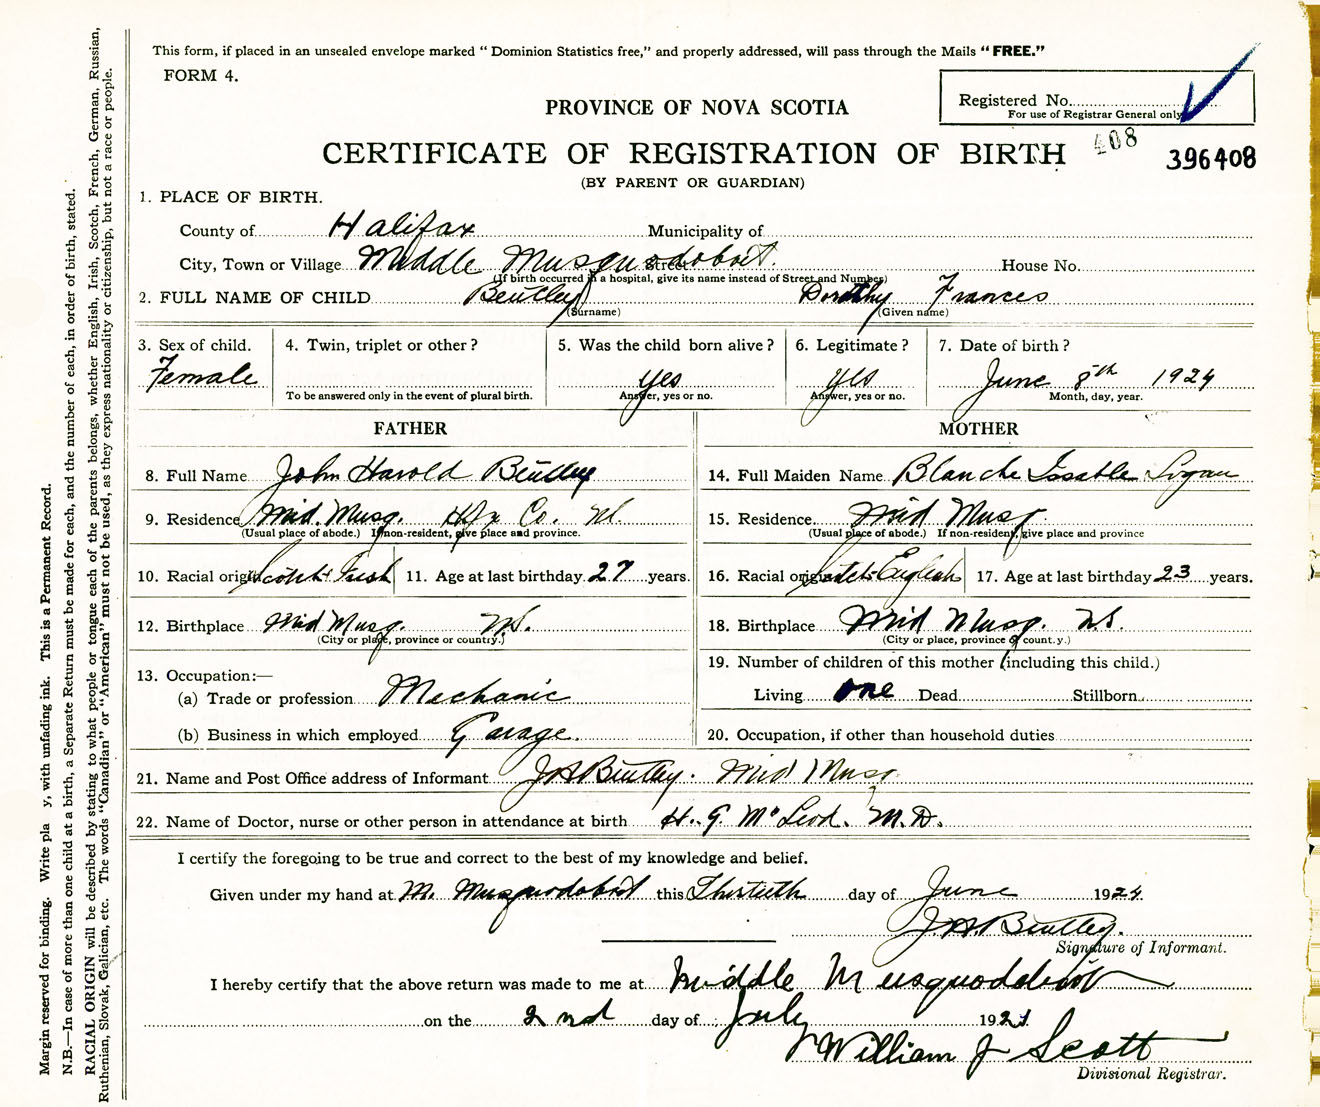 This form, if placed in an unsealed envelope marked “Dominion Statistics free,” and properly addressed, will pass through the Mails “FREE.”
FORM 4.
Registered No.
For use of Registrar General only
PROVINCE OF NOVA SCOTIA
CERTIFICATE OF REGISTRATION OF BIRTH
408
396408
(BY PARENT OR GUARDIAN)
1. PLACE OF BIRTH.
County of Halifax Municipality of
City, Town or Village Middle Musquodoboit. Street House No.
(If birth occurred in a hospital, give its name instead of Street and Number)
2. FULL NAME OF CHILD Bentley Dorothy Frances
(Surname) (Given name)
3. Sex of child. 4. Twin, triplet or other? 5. Was the child born alive? 6. Legitimate? 7. Date of birth?
Female yes yes June 8th 1924
To be answered only in the event of plural birth. Answer, yes or no. Answer, yes or no. Month, day, year.
FATHER
8. Full Name John Harold Bentley
9. Residence Mid. Musq. Hfx Co. N.S.
(Usual place of abode.) If non-resident, give place and province.
10. Racial origin Scotch-Irish 11. Age at last birthday 27 years.
12. Birthplace Mid Musq. N.S.
(City or place, province or country.)
13. Occupation:—
(a) Trade or profession Mechanic
(b) Business in which employed Garage.
MOTHER
14. Full Maiden Name Blanche Issable Logan
15. Residence Mid Musq.
(Usual place of abode.) If non-resident, give place and province
16. Racial origin Scotch-English 17. Age at last birthday 23 years.
18. Birthplace Mid Musq. N.S.
(City or place, province or count.y.)
19. Number of children of this mother (including this child.)
Living one Dead Stillborn
20. Occupation, if other than household duties
21. Name and Post Office address of Informant J H Bentley. Mid Musq.
22. Name of Doctor, nurse or other person in attendance at birth H. G. McLeod. M.D.
I certify the foregoing to be true and correct to the best of my knowledge and belief.
Given under my hand at M. Musquodoboit this Thirtieth day of June 1924.
J. H. Bentley.
Signature of Informant.
I hereby certify that the above return was made to me at Middle Musquodoboit
on the 2nd day of July 192
William J Scott
Divisional Registrar.
Margin reserved for binding. Write pla y, with unfading ink. This is a Permanent Record.
N.B.—In case of more than one child at a birth, a Separate Return must be made for each, and the number of each, in order of birth, stated.
RACIAL ORIGIN will be described by stating to what people or tongue each of the parents belongs, whether English, Irish, Scotch, French, German, Russian,
Ruthenian, Slovak, Galician, etc. The words “Canadian” or “American” must not be used, as they express nationality or citizenship, but not a race or people.